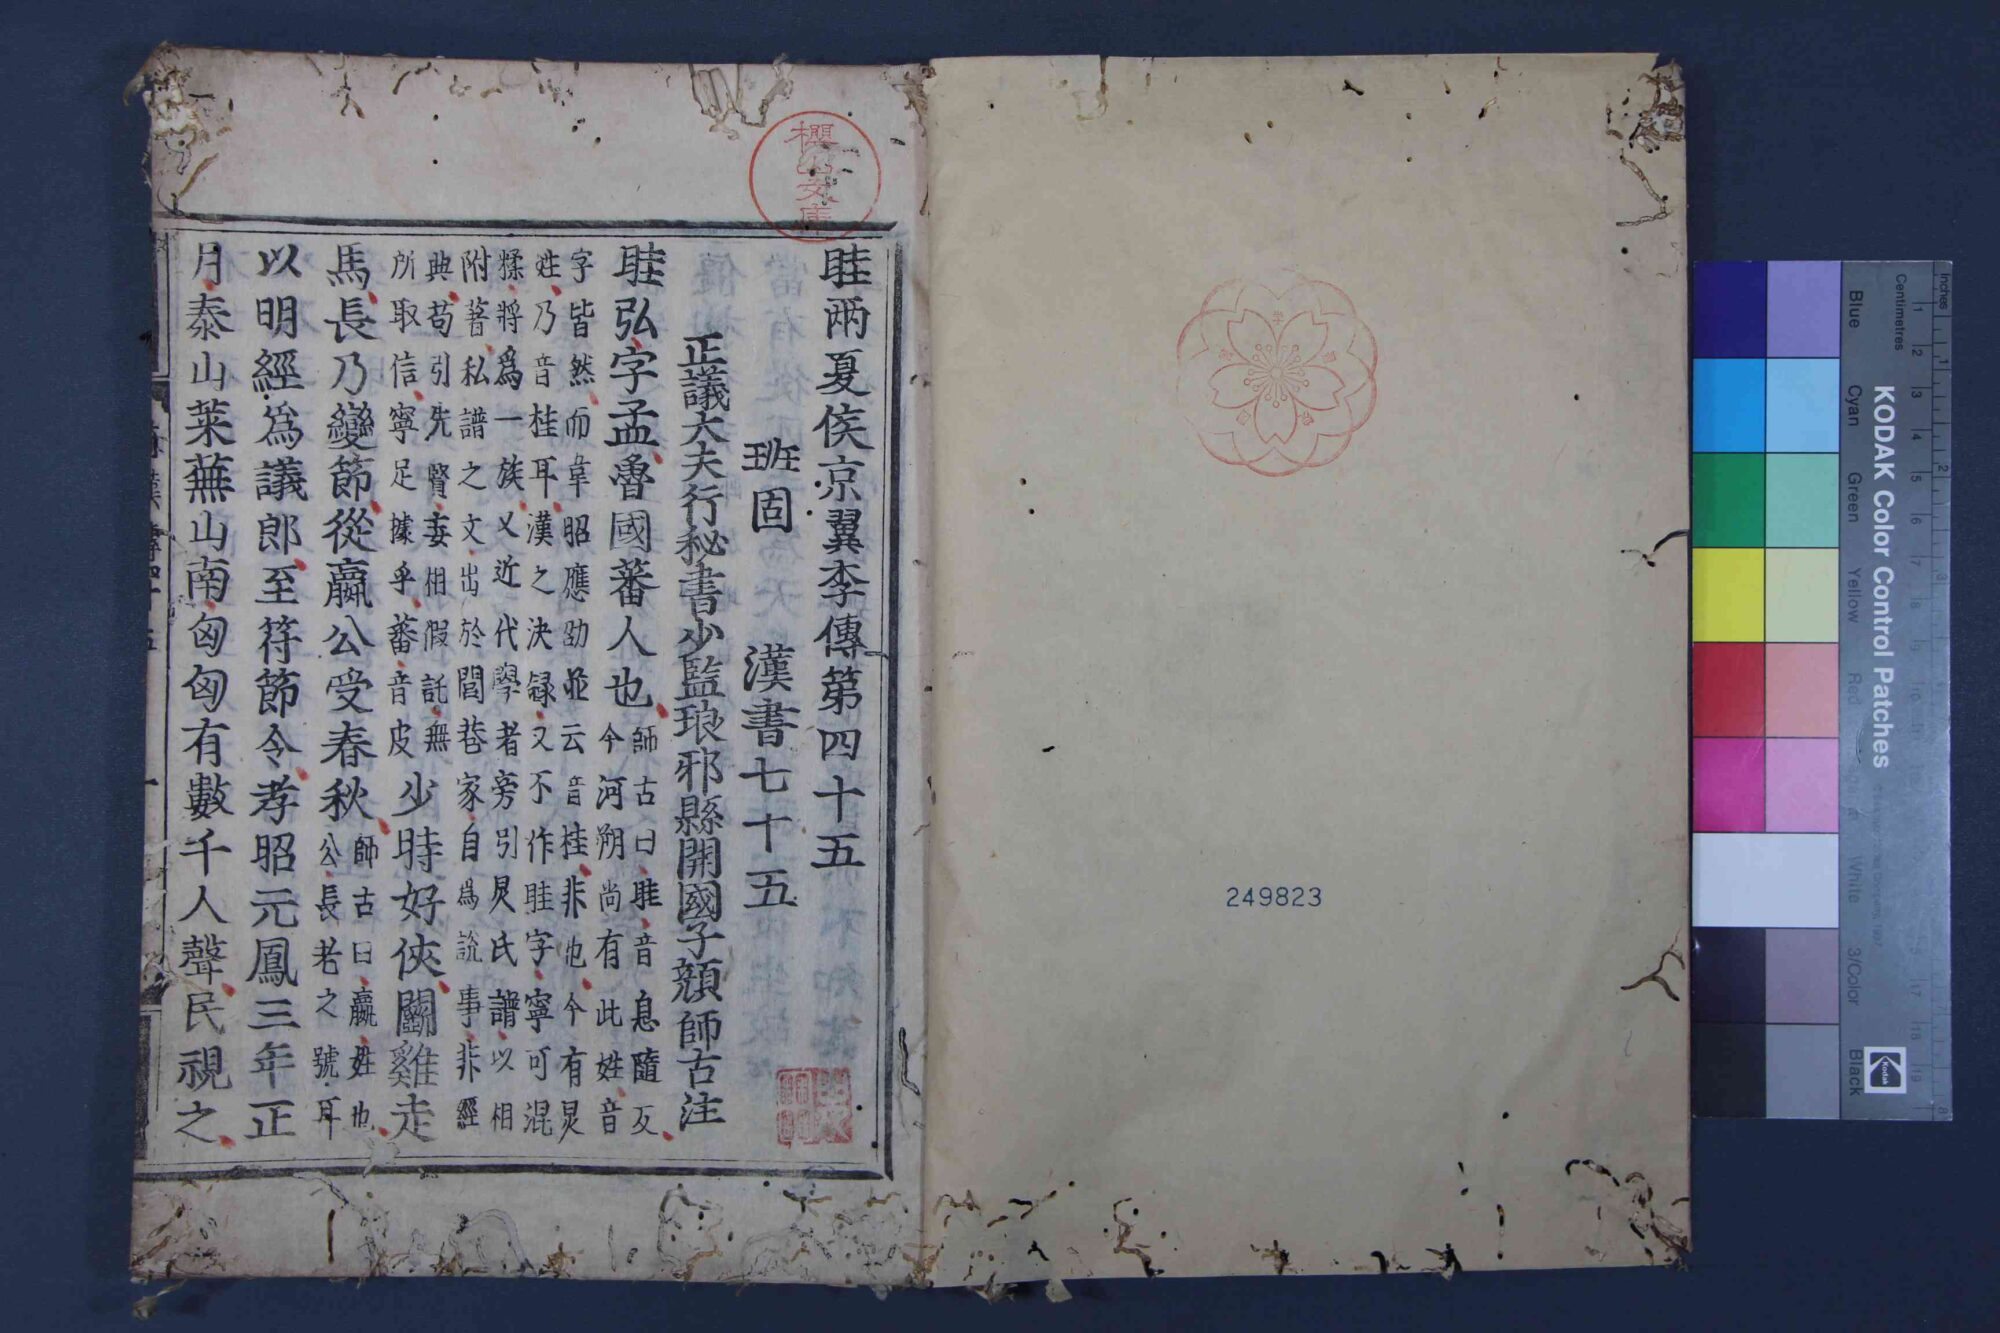 眭兩夏侯京翼李傳第四十五
班固 漢書七十五
正議大夫行秘書少監琅邪縣開國子顔師古注
眭弘字孟魯國蕃人也
師古曰眭音息隨反
今河朔尚有此姓音
字皆然而韋昭應劭並云音桂非也今有炅
姓乃音桂耳漢之决録又不作眭字寧可混
糅將爲一族又近代學者旁引炅氏譜以相
附著私譜之文出於閭巷家自爲說事非經
典苟引先賢妄相假託無
所取信寧足據乎蕃音皮
少時好俠鬬雞走
馬長乃變節從嬴公受春秋
師古曰嬴姓也
公長老之號耳
以明經爲議郎至符節令孝昭元鳳三年正
月泰山萊蕪山南匈匈有數千人聲民視之
櫻山文庫
249823
KODAK Color Control Patches
Blue
Cyan
Green
Yellow
Red
White
3/Color
Black
Inches
Centimetres
Kodak